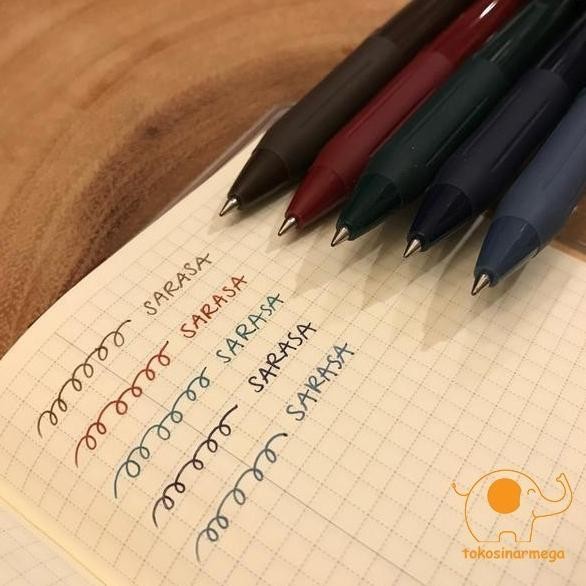 SARASA
SARASA
SARASA
SARASA
SARASA
tokosinarmega